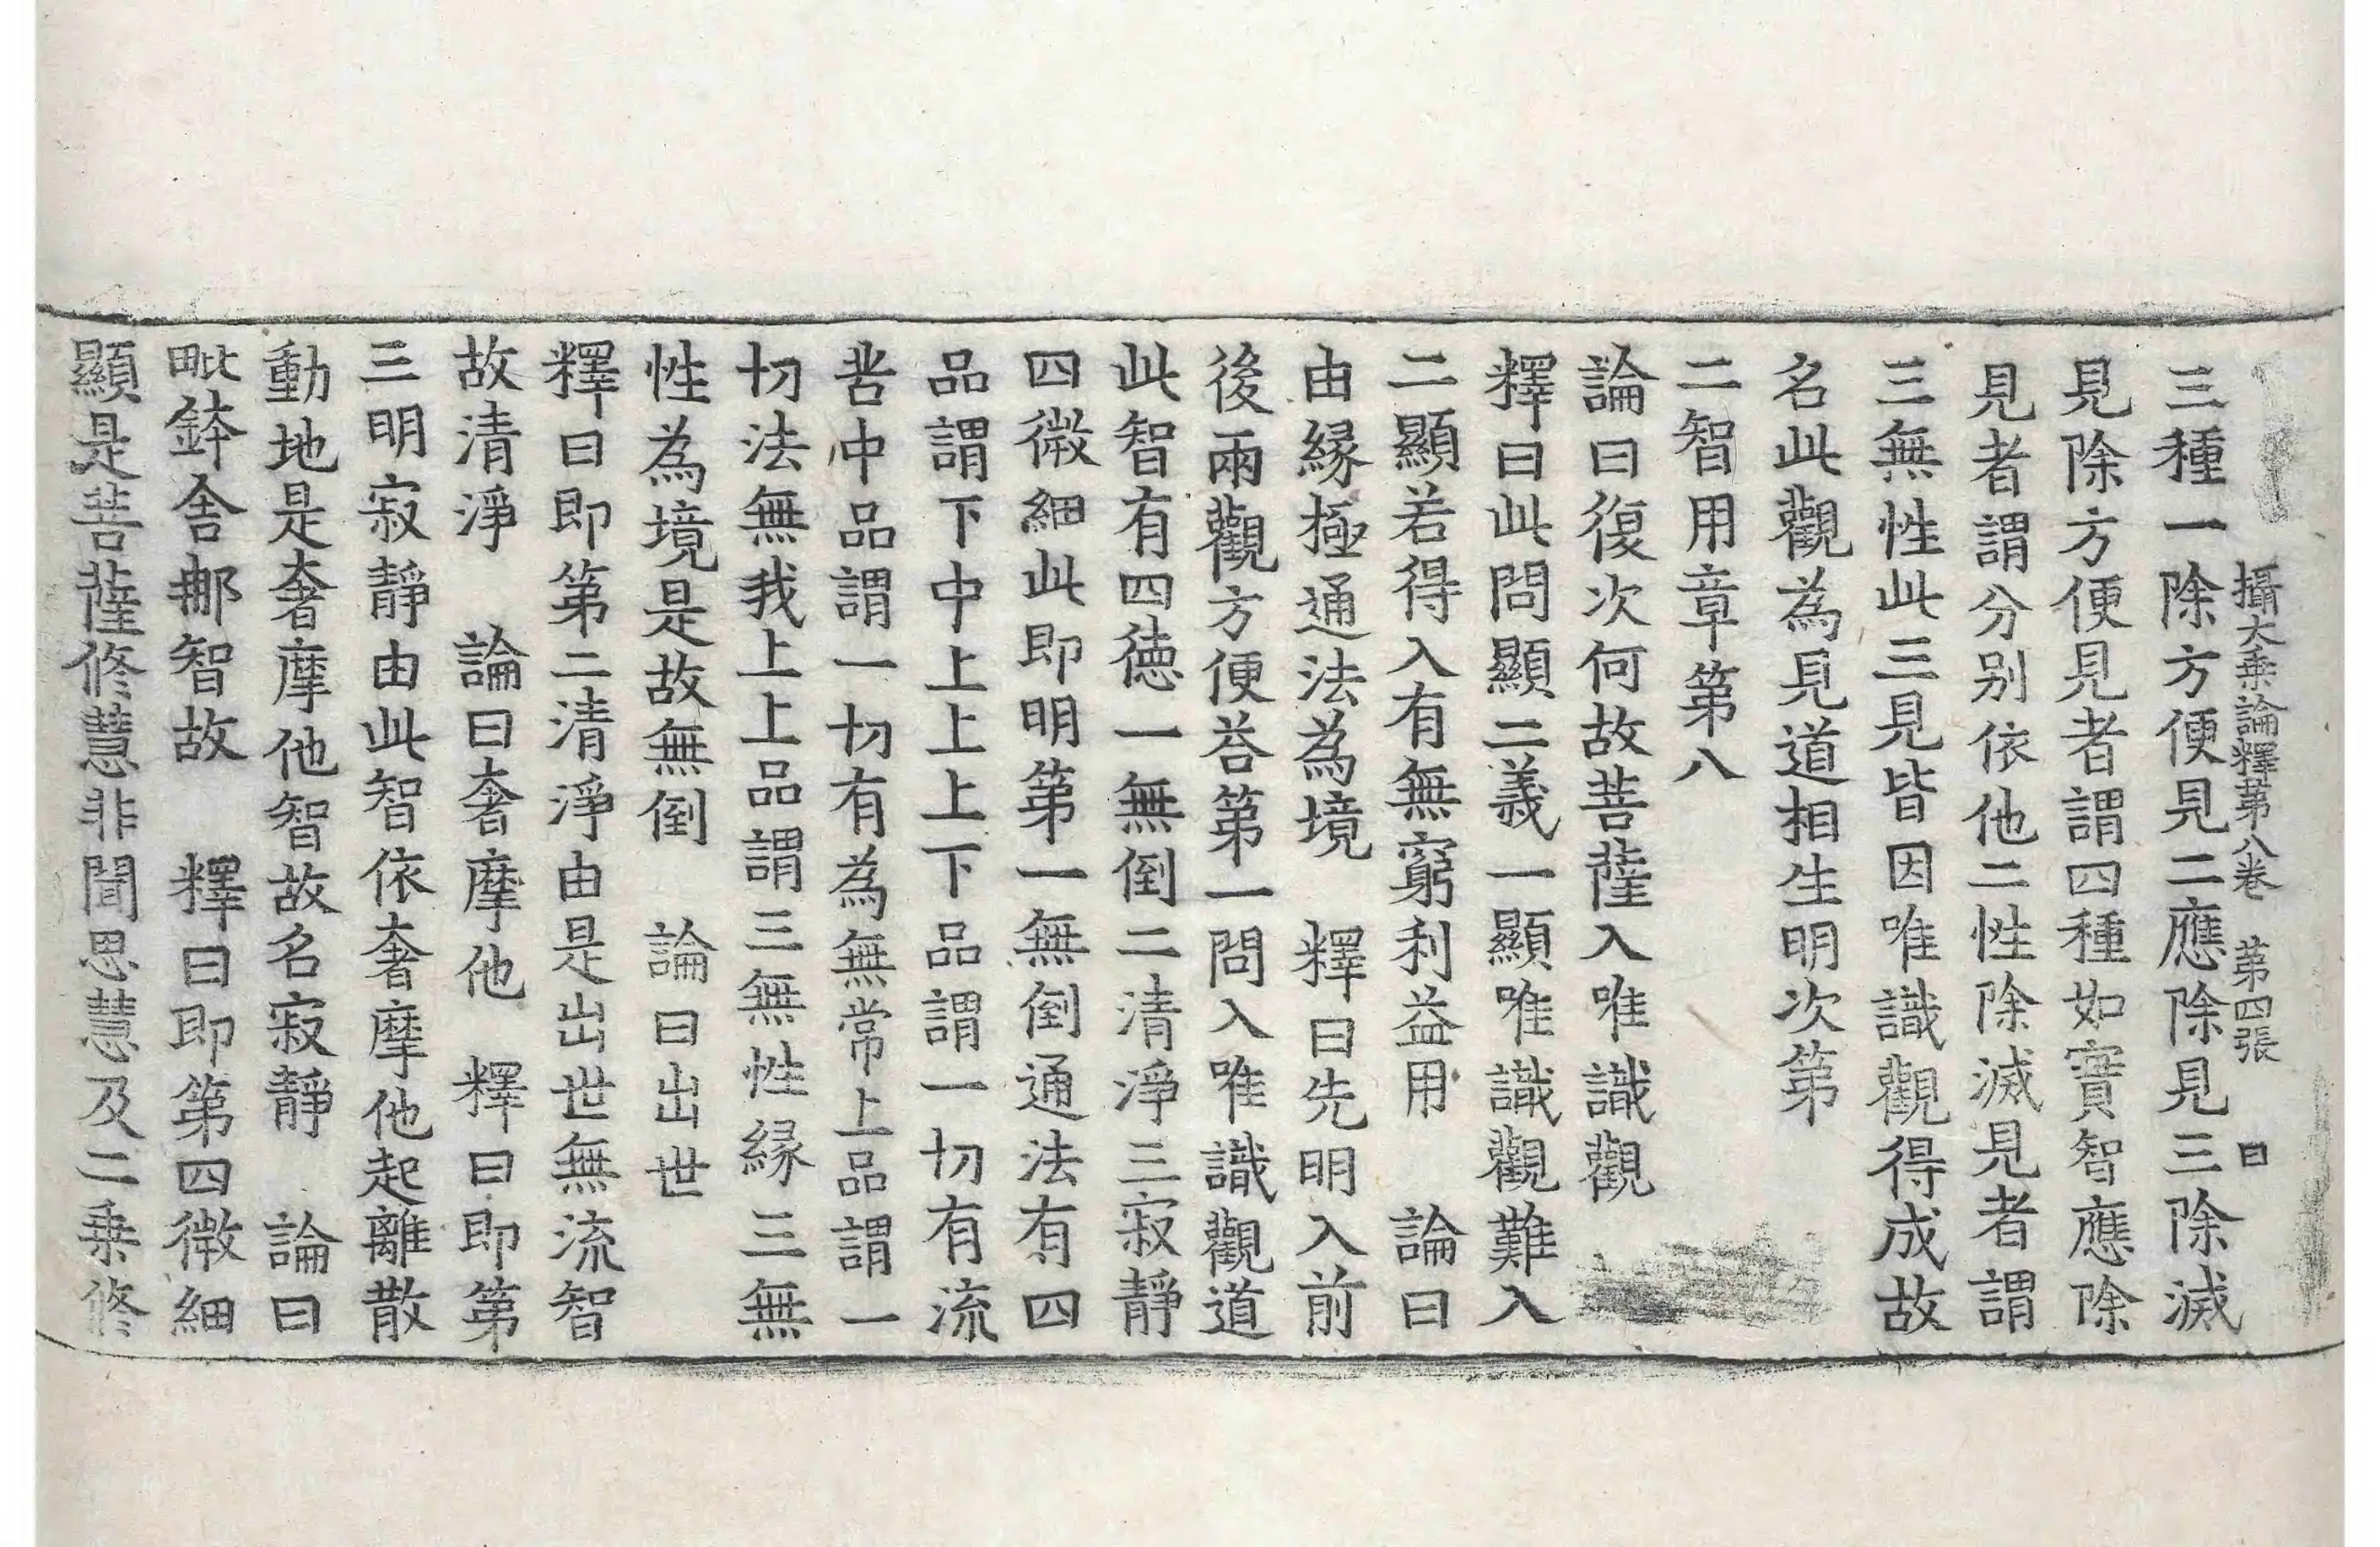 攝大乗論釋第八卷　第四張　曰
三種一除方便見二應除見三除滅
見除方便見者謂四種如實智應除
見者謂分別依他二性除滅見者謂
三無性此三見皆因唯識觀得成故
名此觀為見道相生明次第
二智用章第八
論曰復次何故菩薩入唯識觀
釋曰此問顯二義一顯唯識觀難入
二顯若得入有無窮利益用　論曰
由縁極通法為境　釋曰先明入前
後兩觀方便荅第一問入唯識觀道
此智有四德一無倒二清淨三寂靜
四微細此即明第一無倒通法有四
品謂下中上上上下品謂一切有流
苦中品謂一切有為無常上品謂一
切法無我上上品謂三無性縁三無
性為境是故無倒　論曰出世
釋曰即第二清淨由是出世無流智
故清淨　論曰奢摩他　釋曰即第
三明寂靜由此智依奢摩他起離散
動地是奢摩他智故名寂靜　論曰
毗鉢舍那智故　釋曰即第四微細
顯是菩薩修慧非聞思慧及二乗修